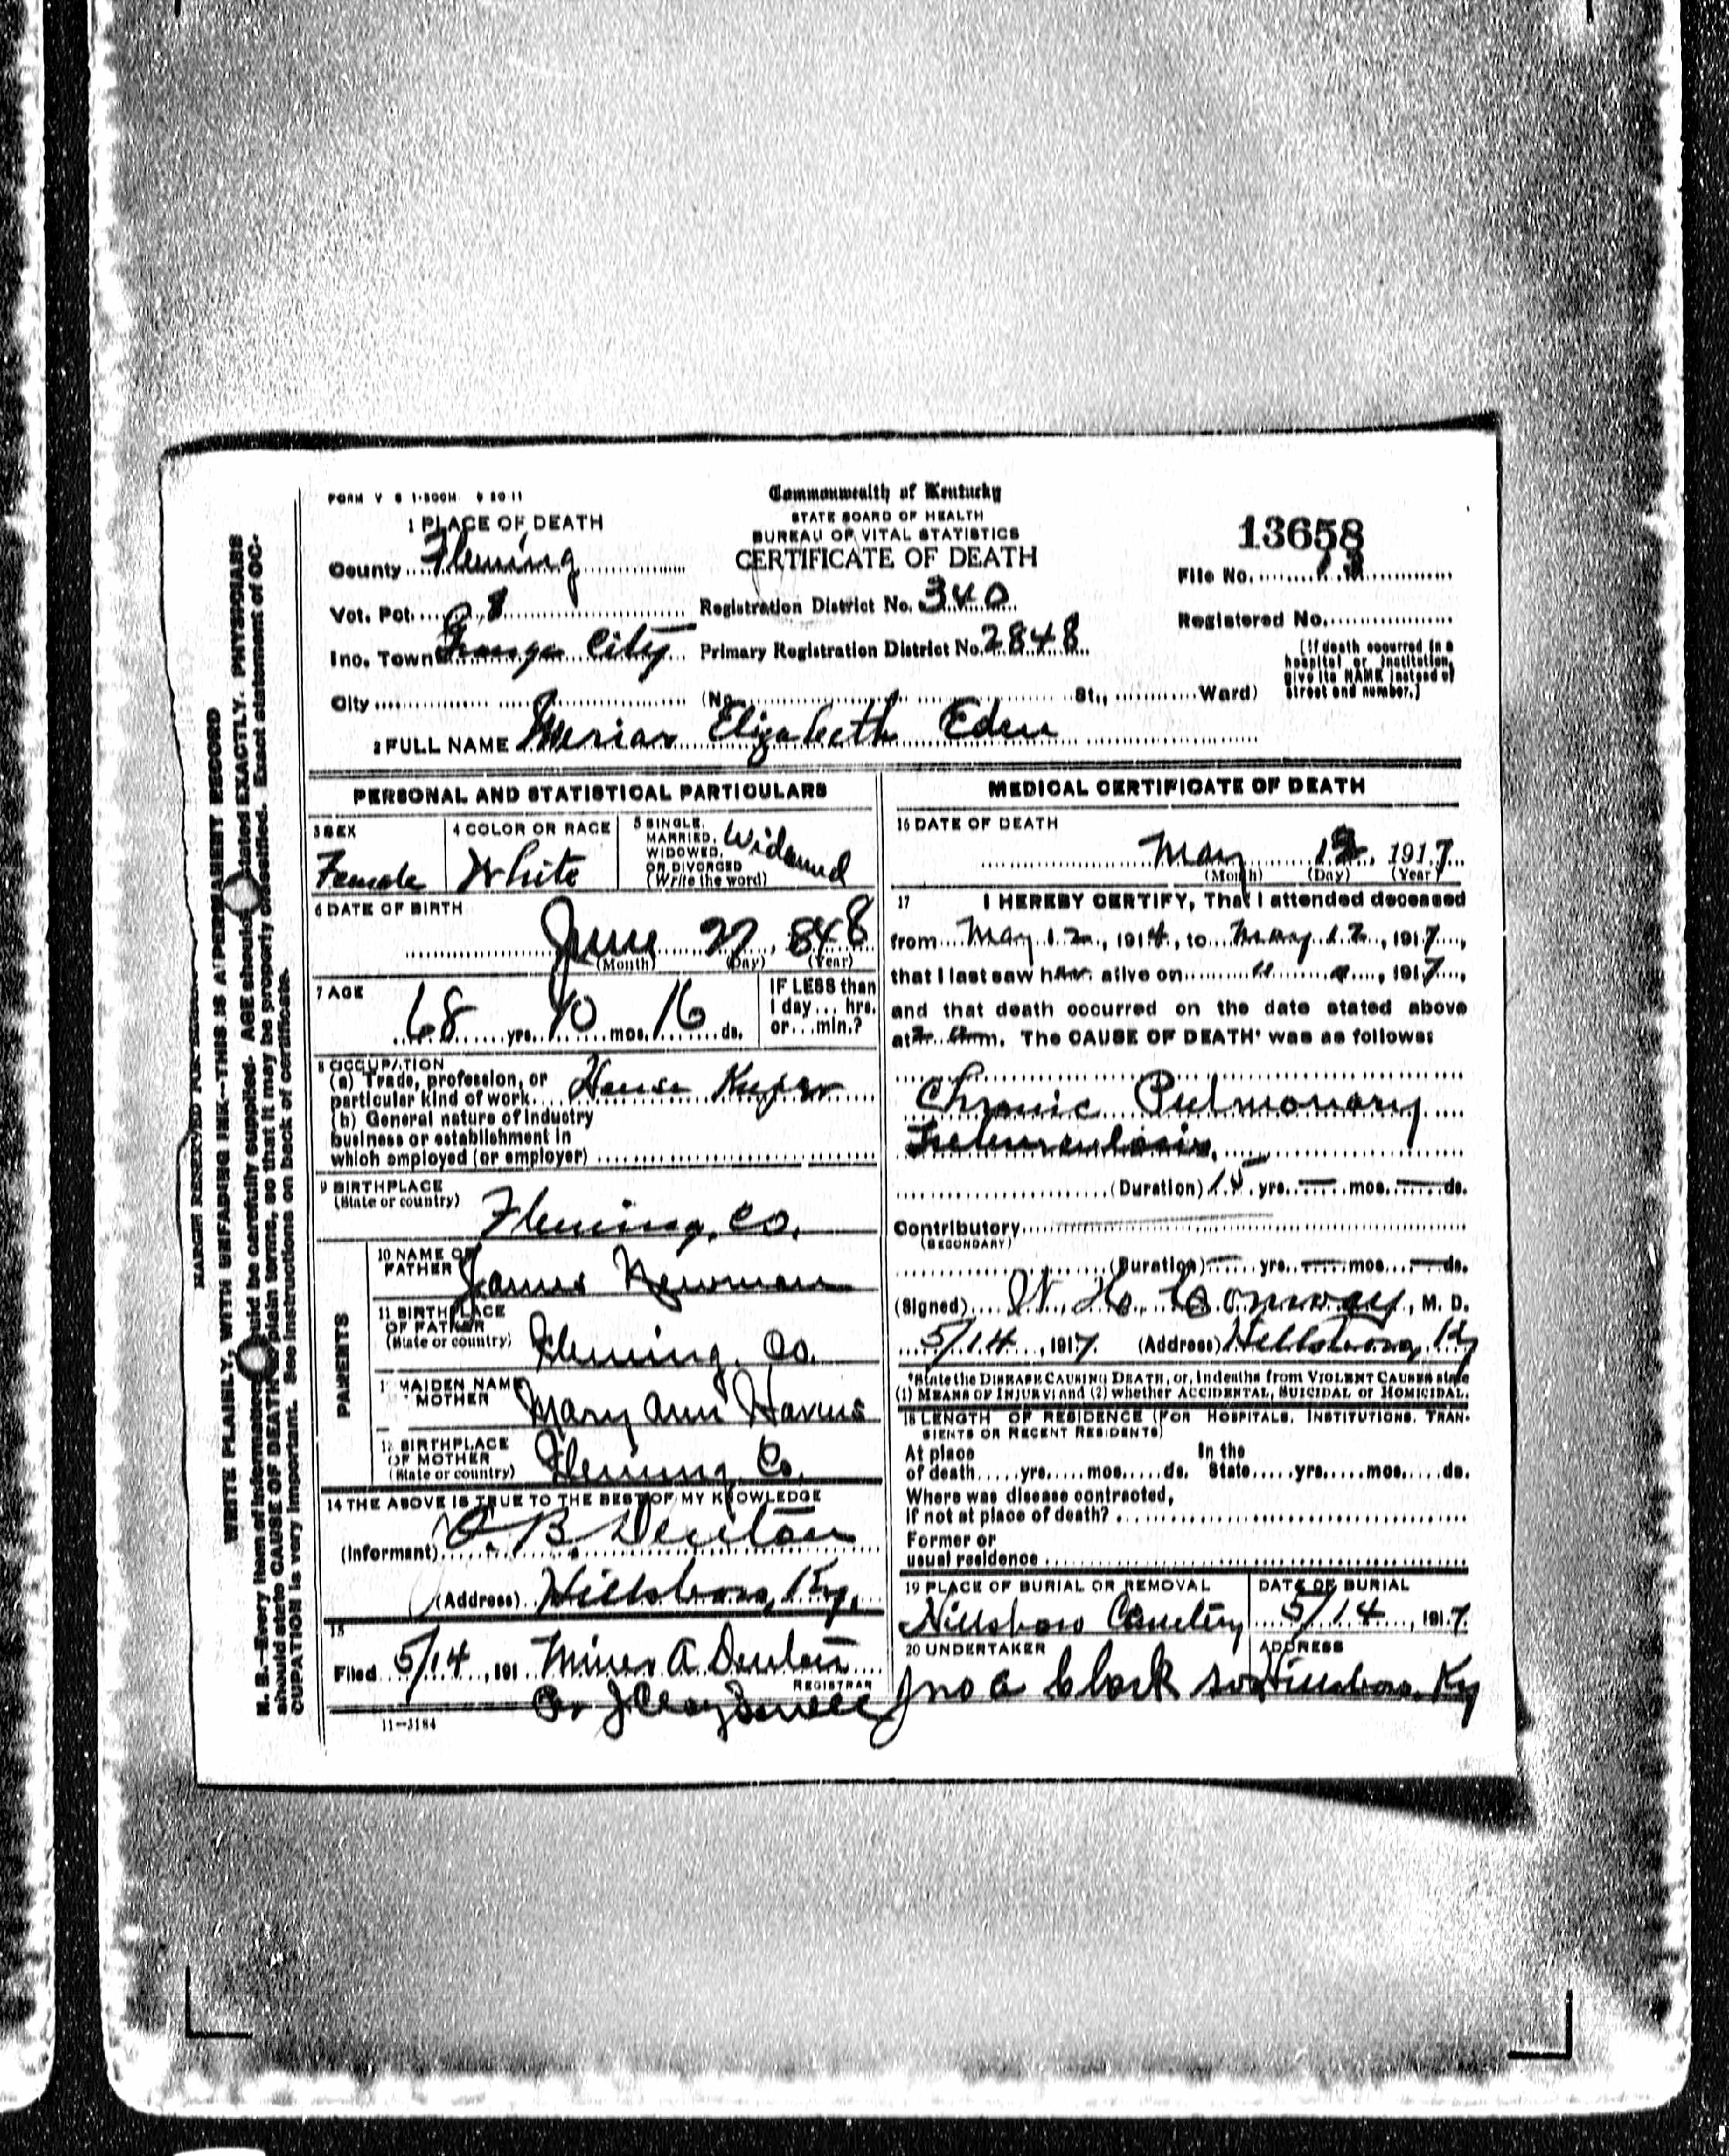 FORM V S 1-500M 9 20 11
Commonwealth of Kentucky
STATE BOARD OF HEALTH
BUREAU OF VITAL STATISTICS
CERTIFICATE OF DEATH
13658
1 PLACE OF DEATH
County Fleming
File No. 13
Vot. Pct. 8
Registration District No. 340
Registered No.
Inc. Town Grange City
Primary Registration District No. 2848
(If death occurred in a
hospital or institution,
give its NAME instead of
street and number.)
City (No. St., Ward)
2 FULL NAME Elizabeth Eden
PERSONAL AND STATISTICAL PARTICULARS
3 SEX
Female
4 COLOR OR RACE
White
5 SINGLE,
MARRIED,
WIDOWED,
OR DIVORCED
(Write the word)
Widowed
6 DATE OF BIRTH
June 27, 848
(Month) (Day) (Year)
7 AGE
68 yrs. 10 mos. 16 ds.
IF LESS than
1 day... hrs.
or...min.?
8 OCCUPATION
(a) Trade, profession, or
particular kind of work House Keeper
(b) General nature of industry
business or establishment in
which employed (or employer)
9 BIRTHPLACE
(State or country)
Fleming Co.
PARENTS
10 NAME OF
FATHER
James Newman
11 BIRTHPLACE
OF FATHER
(State or country)
Fleming Co.
MAIDEN NAME
MOTHER
Mary Ann
BIRTHPLACE
OF MOTHER
(State or country)
Fleming Co.
14 THE ABOVE IS TRUE TO THE BEST OF MY KNOWLEDGE
(Informant) O. B. Denton
(Address) Hillsboro, Ky.
15
Filed 5/14, 191 A Denton
REGISTRAR
11-3184
MEDICAL CERTIFICATE OF DEATH
16 DATE OF DEATH
May 1917
(Month) (Day) (Year)
17 I HEREBY CERTIFY, That I attended deceased
from May 12, 1914, to May 12, 1917,
that I last saw her alive on " ", 1917,
and that death occurred on the date stated above
at m. The CAUSE OF DEATH* was as follows:
Chronic Pulmonary
Tuberculosis.
(Duration) 15 yrs. — mos. — ds.
Contributory
(SECONDARY)
(Duration) — yrs. — mos. — ds.
(Signed) Conway, M. D.
5/14, 1917. (Address) Hillsboro, Ky
*State the DISEASE CAUSING DEATH, or, in deaths from VIOLENT CAUSES state
(1) MEANS OF INJURY; and (2) whether ACCIDENTAL, SUICIDAL or HOMICIDAL.
18 LENGTH OF RESIDENCE (FOR HOSPITALS, INSTITUTIONS, TRAN-
SIENTS OR RECENT RESIDENTS)
At place In the
of death.....yrs.....mos.....ds. State.....yrs.....mos.....ds.
Where was disease contracted,
if not at place of death?
Former or
usual residence
19 PLACE OF BURIAL OR REMOVAL
Hillsboro Cemetery
DATE OF BURIAL
5/14, 1917
20 UNDERTAKER
Jno A Clark
ADDRESS
Hillsboro, Ky
MARGIN RESERVED FOR
WRITE PLAINLY, WITH UNFADING INK—THIS IS A PERMANENT RECORD
N. B.—Every item of information should be carefully supplied. AGE should stated EXACTLY. PHYSICIANS
should state CAUSE OF DEATH plain terms, so that it may be properly classified. Exact statement of OC-
CUPATION is very important. See instructions on back of certificate.